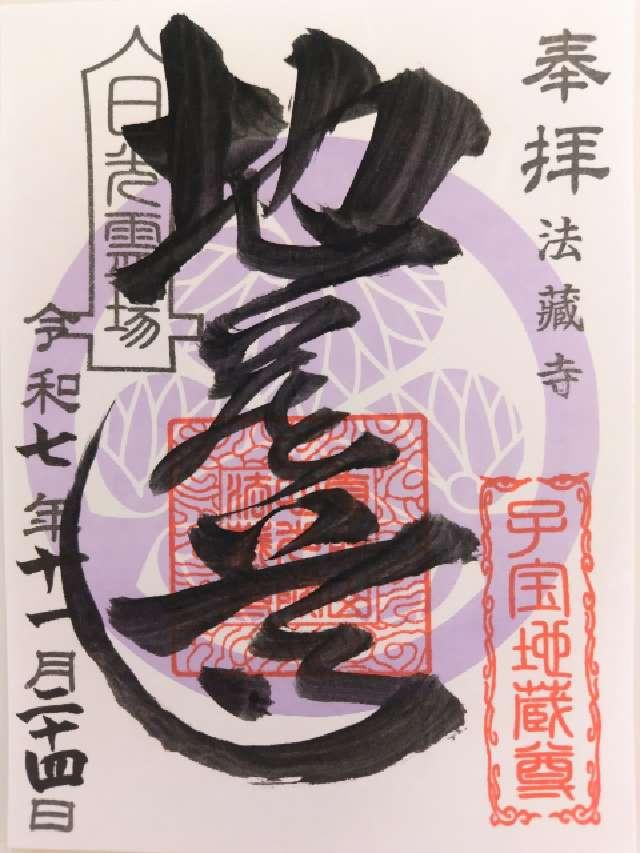 奉拝
法藏寺
子宝地蔵尊
地蔵尊
日光霊場
令和七年十一月二十四日